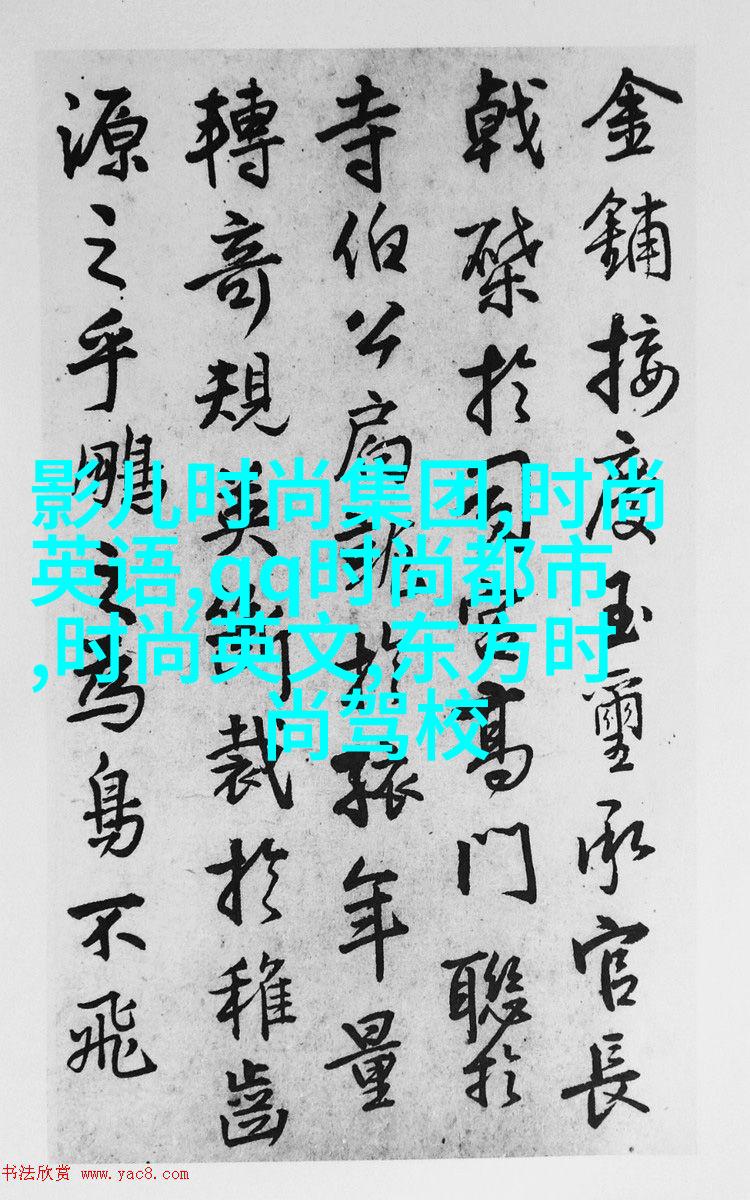 金鋪接慶玉璽承官長
戟於司高門聯於
寺伯公於年量
轉奇規英裁於稚齒
源之乎鵬之為鳥不飛
影儿时尚集团,时尚
英语,qq时尚都市
,时尚英文,东方时
尚驾校
书法欣赏 www.yac8.com